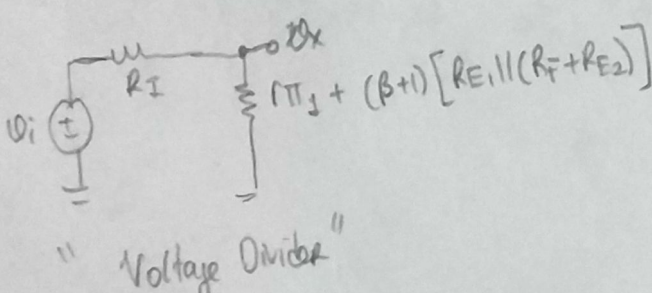 vx
RI
rπ1 + (β+1)[RE1||(RF+RE2)]
vi
±
" Voltage Divider "